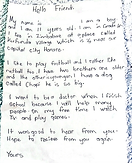 Hello Friend
My name is I am a boy
I am 11 years old I am in Grade
I live in Zimbabwe at a place called
village which is near our
capital city Harare.
I like to play football and I rather like
netball too. I have two brothers one older
and the other younger. I have a dog
called Chapi he is so big.
I want to be a doctor when I finish
school because I will help many
people in my free time I watch
tv and play games.
It was good to hear from you.
Hope to receive from you again.
Yours